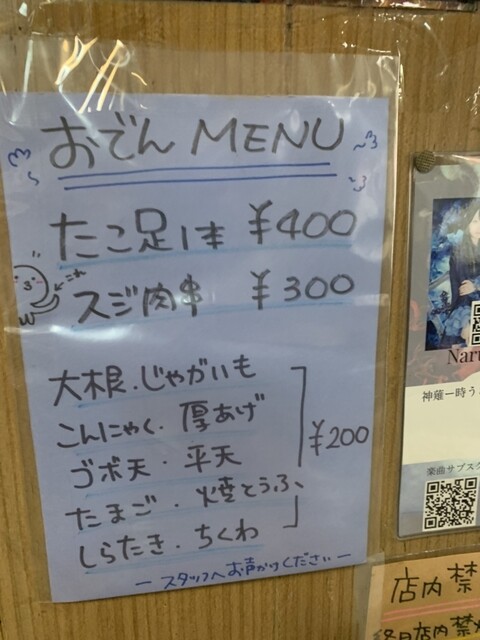 おでん MENU
たこ足1本 ¥400
これ
スジ肉串 ¥300
大根・じゃがいも
こんにゃく・厚あげ
¥200
ゴボ天・平天
たまご・焼とうふ
しらたき・ちくわ
ースタッフへお声がけくださいー
Naru
神薙一時う
楽曲サブスク
店内禁
終日店内禁